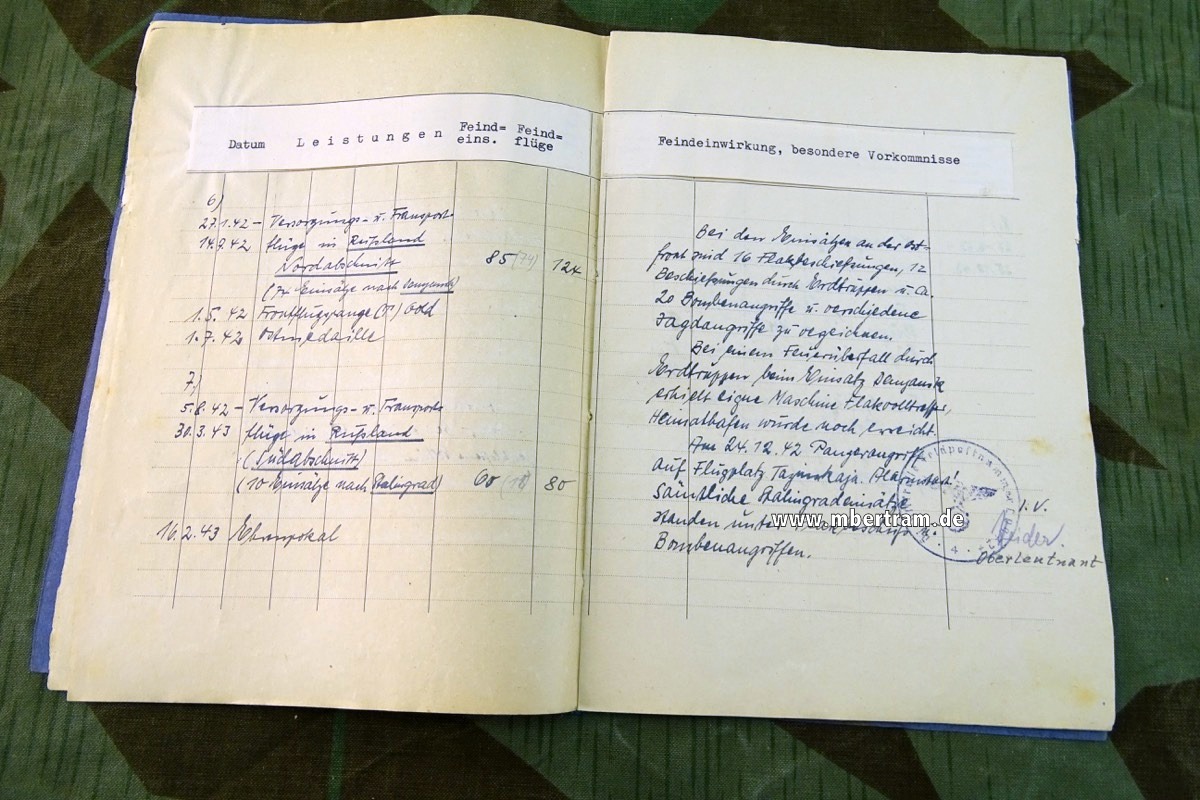 Datum Leistungen Feind= Feind=
eins. flüge
6)
27.1.42 – Versorgungs- u. Transport-
14.7.42 flüge in Rußland
Nordabschnitt 85 (74) 124
(74 Einsätze nach
1.5.42 Frontflugspange Gold
1.7.42 Ostmedaille
7)
5.8.42 – Versorgungs- u. Transport-
30.3.43 flüge in Rußland
(Südabschnitt)
(10 Einsätze nach Stalingrad) 60 (10) 80
16.2.43 Ehrenpokal
Feindeinwirkung, besondere Vorkommnisse
Bei den Einsätzen an der Ost-
front sind 16 Flakbeschießungen, 12
Beschießungen durch Erdtruppen u. ca.
20 Bombenangriffe u. verschiedene
Jagdangriffe zu verzeichnen.
Bei einem Feuerüberfall durch
Erdtruppen beim Einsatz
erhielt eigne Maschine Flakvolltreffer,
Heimathafen wurde noch erreicht.
Am 24.12.42 Panzerangriff
auf Flugplatz Tazinskaja.
Sämtliche Stalingradeinsätze
standen unter u.
Bombenangriffen.
I.V.
Oberleutnant
www.mbertram.de